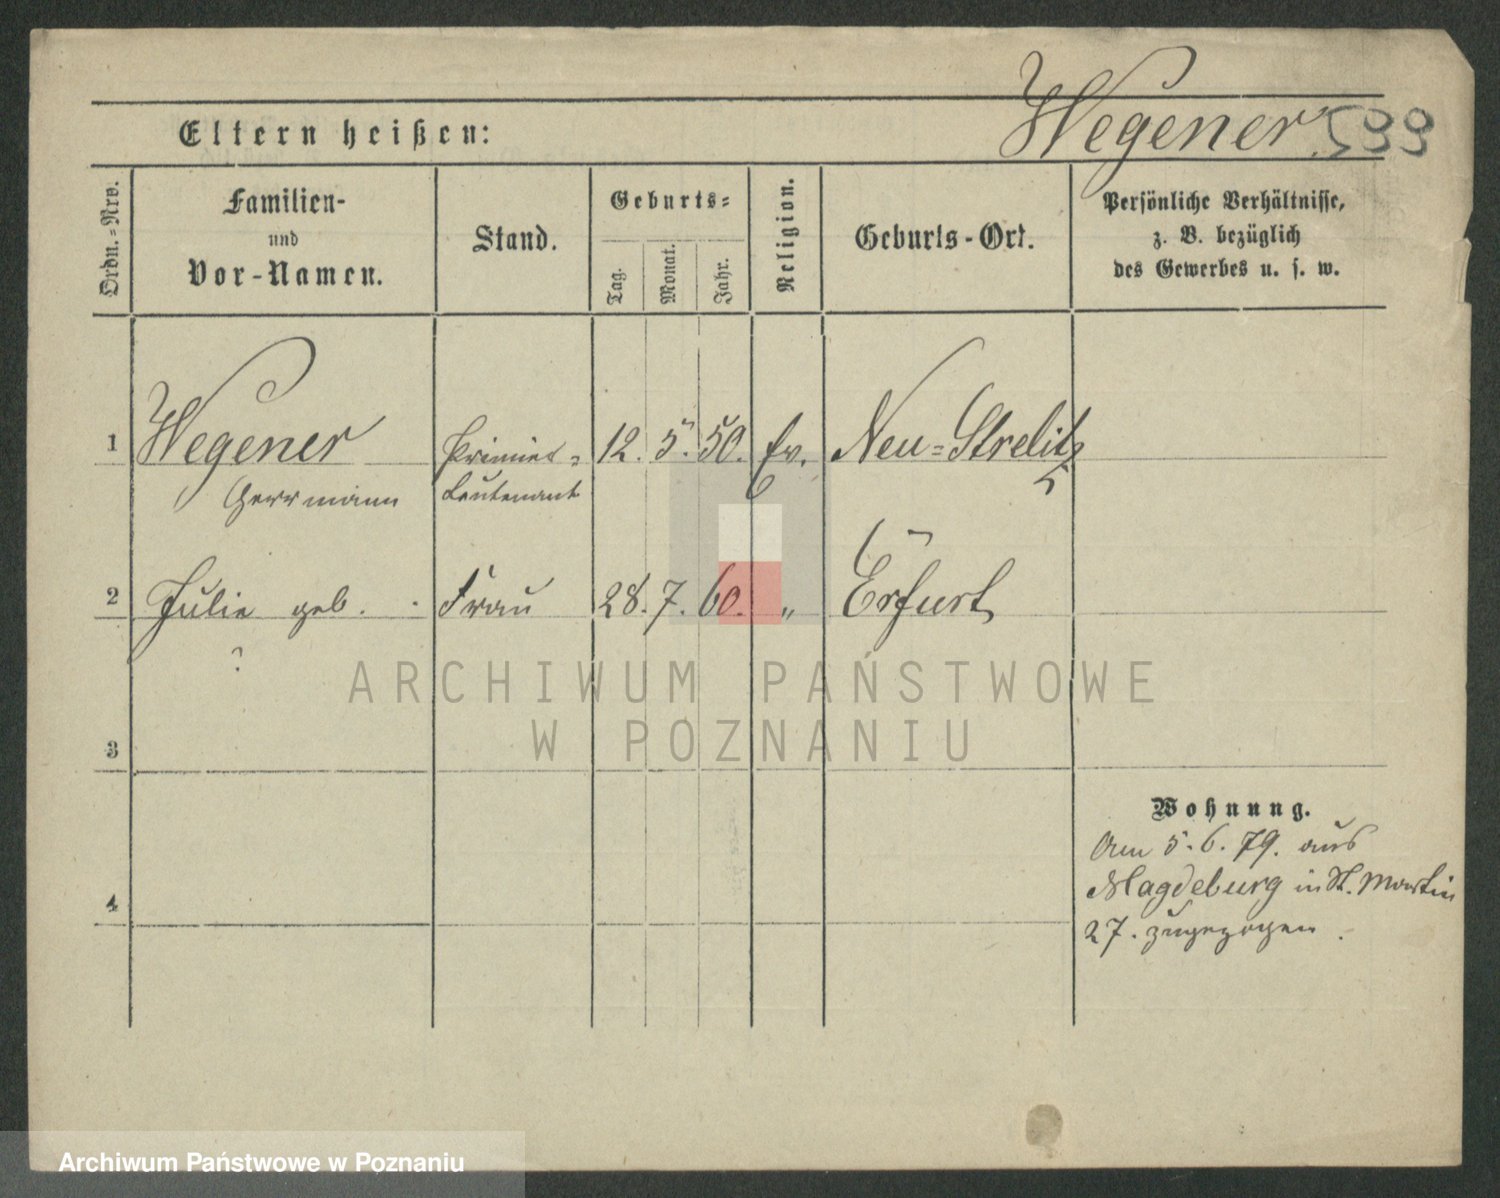 Wegener 599
Eltern heißen:
Ordn.=Nro.
Familien-
und
Vor-Namen.
Stand.
Geburts=
Tag.
Monat.
Jahr.
Religion.
Geburts-Ort.
Persönliche Verhältnisse,
z. B. bezüglich
des Gewerbes u. s. w.
1 Wegener Primier= 12. 5. 50. Ev. Neu=Strelitz
Herrmann Leutenant
2 Julie geb. Frau 28. 7. 60. " Erfurt
?
ARCHIWUM PAŃSTWOWE
W POZNANIU
3
Wohnung.
Am 5.6.79. aus
4 Magdeburg in St. Martin
27. zugezogen.
Archiwum Państwowe w Poznaniu